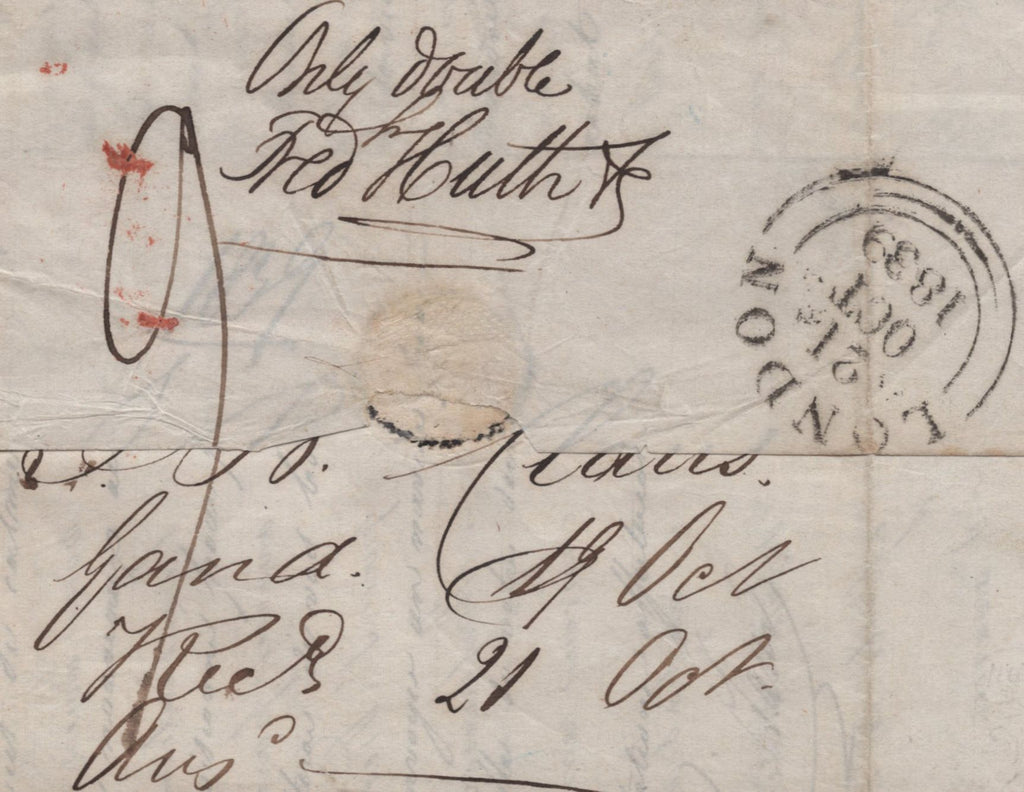 Only double
Fred Huth &
LONDON
21
OCT
1839
Gand. 19 Oct
Recd 21 Oct.
Ansd